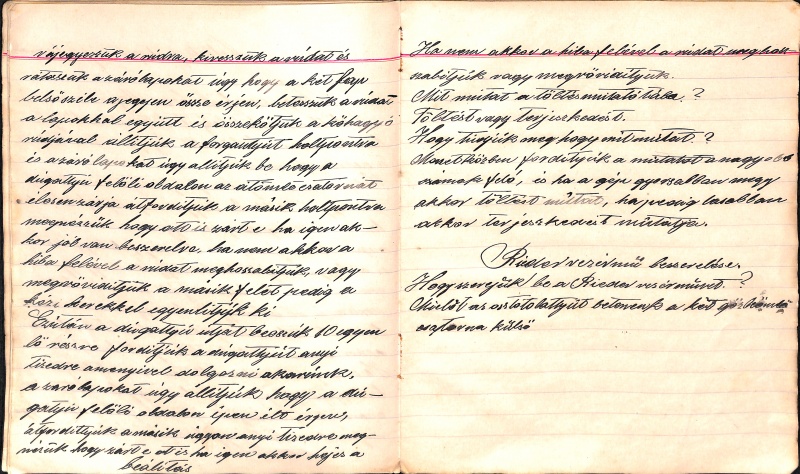 rájegyezzük a rúdra, kivesszük a rúdat és
rátesszük a zárólapokat úgy hogy a két lap
belső széle a jegyen össze érjen, betesszük a rúdat
a lapokkal együtt és összekötjük a kőhagyó
rúdjával állítjuk a forgattyút holtpontra
és a zárólapokat úgy állítjuk be hogy a
dugattyú felöli oldalon az átömlő csatornát
élesen zárja átfordítjuk a másik holtpontra
megnézzük hogy ott is zárt e ha igen ak-
kor jól van beszerelve, ha nem akkor a
hiba felével a rúdat meghosszabítjuk, vagy
megrövidítjük a másik felet pedig a
kézi kerekkel egyenlítjük ki
Ezután a dugattyú útját beosszuk 10 egyen
lő részre fordítjuk a dugattyút anyi
tizedre amenyivel dolgozni akarunk,
a zárólapokat úgy állítjuk hogy a du-
gattyú felöli oldalon épen élt érjen,
átfordittyuk a másik úgyan anyi tizedre meg-
nézük hogy zárt e ott is ha igen akkor hejes a
beálitás
Ha nem akkor a hiba felével a rúdat meghosz
szabítjuk vagy megröviditjuk.
Mit mutat a töltésmutató tábla.?
Töltést vagy terjeszkedést.
Hogy tudjuk meg hogy mit mutat.?
Menetközben fordítjuk a mutatót a nagyobb
számok feló, is ha a gép gyorsabban megy
akkor töltést mutat, ha pedig lasabban
akkor terjeszkedést mutatja.
Rieder vezérmű beszerelése.
Hogy szereljük be a Rieder vezérművet.?
Mielőt az osztótolattyút betennénk a két gőzbeömlő
csatorna külső